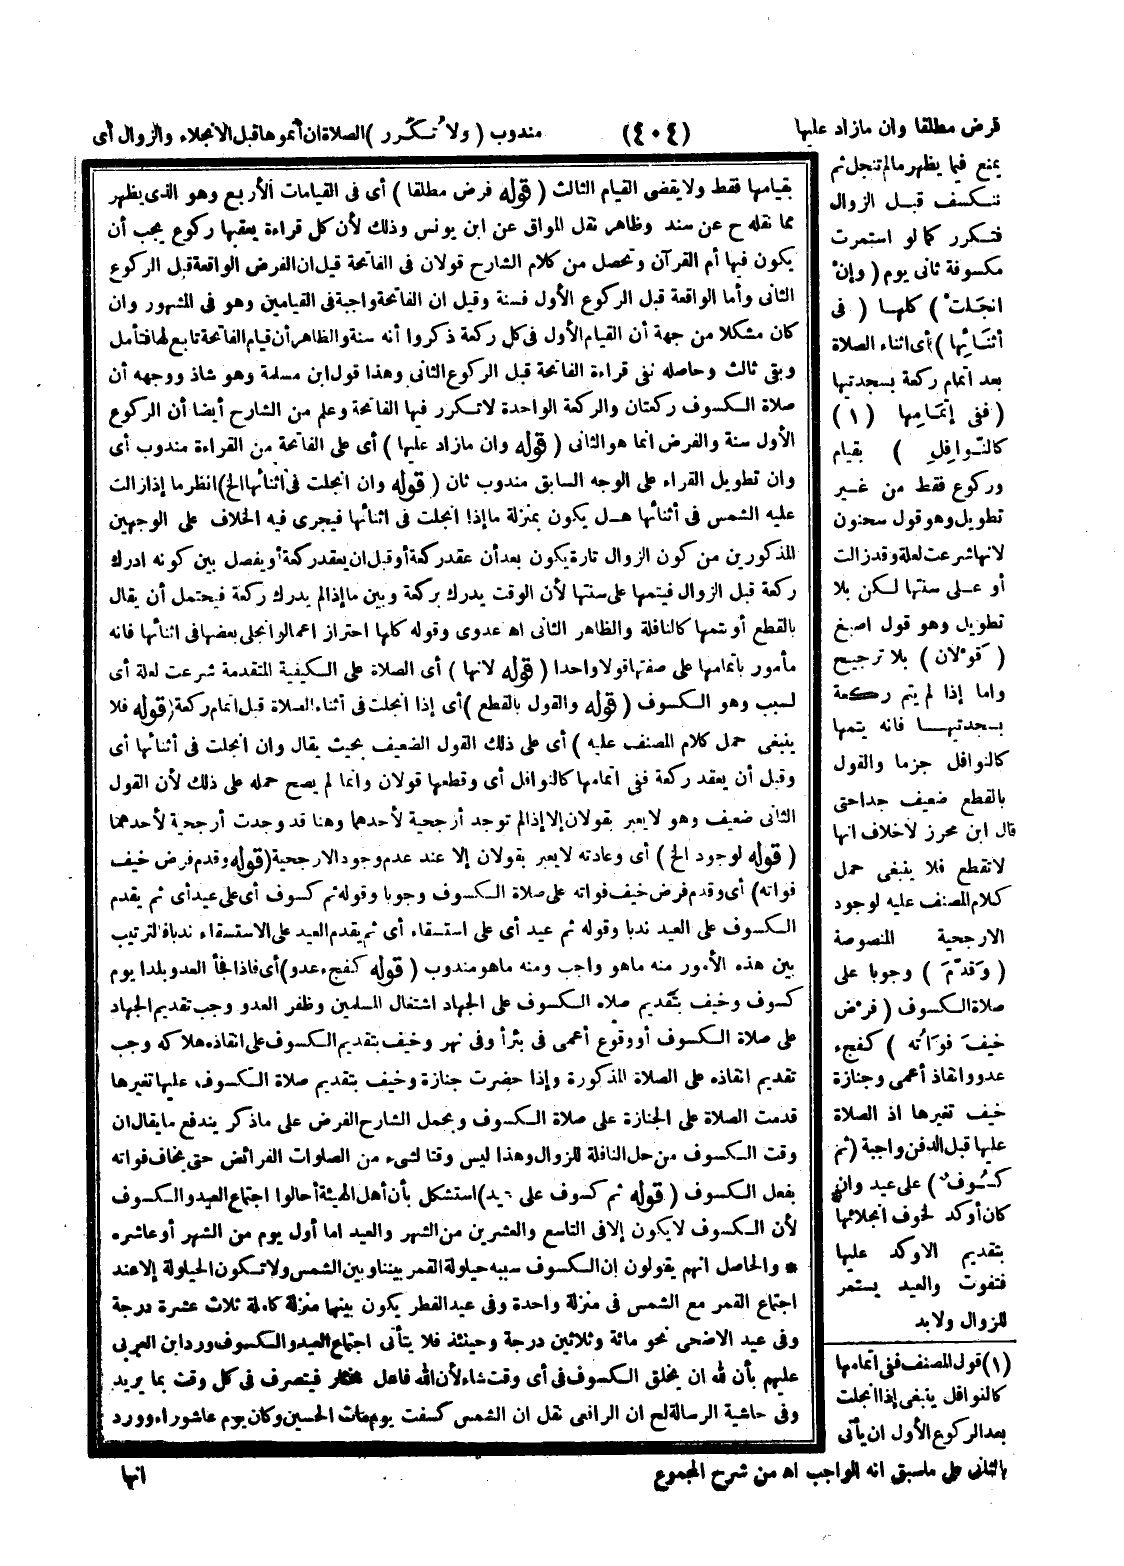 فرض مطلقا وان مازاد عليها (٤٠٤) مندوب (ولا تكرر) الصلاة ان أتموها قبل الانجلاء والزوال أى
يمنع فيما يظهر مالم تنجل ثم
تنكسف قبل الزوال
فتكرر كما لو استمرت
مكسوفة ثانى يوم (وإن
انجلت) كلها (فى
أثنائها) أى اثناء الصلاة
بعد اتمام ركعة بسجدتيها
(ففى إتمامها (١)
كالنوافل) بقيام
وركوع فقط من غير
تطويل وهو قول سحنون
لانها شرعت لعلة وقد زالت
أو على سنتها لكن بلا
تطويل وهو قول اصبغ
(قولان) بلا ترجيح
واما إذا لم يتم ركعة
بسجدتيها فانه يتمها
كالنوافل جزما والقول
بالقطع ضعيف جدا حتى
قال ابن محرز لا خلاف انها
لا تقطع فلا ينبغى حمل
كلام المصنف عليه لوجود
الارجحية المنصوصة
(وقدم) وجوبا على
صلاة الكسوف (فرض
خيف فواته) كفجء
عدو وانقاذ أعمى وجنازة
خيف تغيرها اذ الصلاة
عليها قبل الدفن واجبة (ثم
كسوف) على عيد وان
كان أوكد لخوف انجلائها
بتقديم الاوكد عليها
فتفوت والعيد يستمر
للزوال ولابد
(١) قول المصنف ففى اتمامها
كالنوافل ينبغى إذا انجلت
بعد الركوع الأول ان يأتى
بالثانى على ماسبق انه الواجب اه من شرح المجموع
بقيامها فقط ولا يقضى القيام الثالث (قوله فرض مطلقا) أى فى القيامات الأربع وهو الذى يظهر
مما نقله ح عن سند وظاهر نقل المواق عن ابن يونس وذلك لأن كل قراءة يعقبها ركوع يجب أن
يكون فيها أم القرآن وتحصل من كلام الشارح قولان فى الفاتحة قيل ان الفرض الواقعة قبل الركوع
الثانى وأما الواقعة قبل الركوع الأول فسنة وقيل ان الفاتحة واجبة فى القيامين وهو فى المشهور وان
كان مشكلا من جهة أن القيام الأول فى كل ركعة ذكروا أنه سنة والظاهر أن قيام الفاتحة تابع لها فتأمل
وبقى ثالث وحاصله نفى قراءة الفاتحة قبل الركوع الثانى وهذا قول ابن مسلمة وهو شاذ ووجهه أن
صلاة الكسوف ركعتان والركعة الواحدة لا تكرر فيها الفاتحة وعلم من الشارح أيضا أن الركوع
الأول سنة والفرض انما هو الثانى (قوله وان مازاد عليها) أى على الفاتحة من القراءة مندوب أى
وان تطويل القراء على الوجه السابق مندوب ثان (قوله وان انجلت فى أثنائها الخ) انظر ما إذا زالت
عليه الشمس فى أثنائها هل يكون بمنزلة ما إذا انجلت فى اثنائها فيجرى فيه الخلاف على الوجهين
المذكورين من كون الزوال تارة يكون بعد أن عقد ركعة أو قبل ان يعقد ركعة أو يفصل بين كونه ادرك
ركعة قبل الزوال فيتمها على سنتها لأن الوقت يدرك بركعة وبين ما إذا لم يدرك ركعة فيحتمل أن يقال
بالقطع أو يتمها كالنافلة والظاهر الثانى اه عدوى وقوله كلها احتراز اعما لو انجلى بعضها فى اثنائها فانه
مأمور باتمامها على صفتها قولا واحدا (قوله لانها) أى الصلاة على الكيفية المتقدمة شرعت لعلة أى
لسبب وهو الكسوف (قوله والقول بالقطع) أى إذا انجلت فى أثناء الصلاة قبل اتمام ركعة (قوله فلا
ينبغى حمل كلام المصنف عليه) أى على ذلك القول الضعيف بحيث يقال وان انجلت فى أثنائها أى
وقبل أن يعقد ركعة ففى اتمامها كالنوافل أى وقطعها قولان وانما لم يصح حمله على ذلك لأن القول
الثانى ضعيف وهو لا يعبر بقولان إلا إذا لم توجد أرجحية لأحدهما وهنا قد وجدت أرجحية لأحدهما
(قوله لوجود الخ) أى وعادته لا يعبر بقولان إلا عند عدم وجود الارجحية (قوله وقدم فرض خيف
فواته) أى وقدم فرض خيف فواته على صلاة الكسوف وجوبا وقوله ثم كسوف أى على عيد أى ثم يقدم
الكسوف على العيد ندبا وقوله ثم عيد أى على استسقاء أى ثم يقدم العيد على الاستسقاء ندبا فالترتيب
بين هذه الأمور منه ماهو واجب ومنه ماهو مندوب (قوله كفجء عدو) أى فاذا فجأ العدو بلدا يوم
كسوف وخيف بتقديم صلاة الكسوف على الجهاد اشتغال المسلمين وظفر العدو وجب تقديم الجهاد
على صلاة الكسوف أو وقوع أعمى فى بئر أو فى نهر وخيف بتقديم الكسوف على انقاذه هلاكه وجب
تقديم انقاذه على الصلاة المذكورة وإذا حضرت جنازة وخيف بتقديم صلاة الكسوف عليها تغيرها
قدمت الصلاة على الجنازة على صلاة الكسوف وبحمل الشارح الفرض على ماذكر يندفع مايقال ان
وقت الكسوف من حل النافلة للزوال وهذا ليس وقتا لشىء من الصلوات الفرائض حتى يخاف فواته
بفعل الكسوف (قوله ثم كسوف على عيد) استشكل بأن أهل الهيئة أحالوا اجتماع العيد والكسوف
لأن الكسوف لا يكون إلا فى التاسع والعشرين من الشهر والعيد اما أول يوم من الشهر أو عاشره
* والحاصل انهم يقولون إن الكسوف سببه حيلولة القمر بيننا وبين الشمس ولا تكون الحيلولة إلا عند
اجتماع القمر مع الشمس فى منزلة واحدة وفى عيد الفطر يكون بينها منزلة كاملة ثلاث عشرة درجة
وفى عيد الاضحى نحو مائة وثلاثين درجة وحينئذ فلا يتأتى اجتماع العيد والكسوف ورد ابن العربى
عليهم بأن لله ان يخلق الكسوف فى أى وقت شاء لأن الله فاعل مختار فيتصرف فى كل وقت بما يريد
وفى حاشية الرسالة لح ان الرافعى نقل ان الشمس كسفت يوم مات الحسين وكان يوم عاشوراء وورد
انها